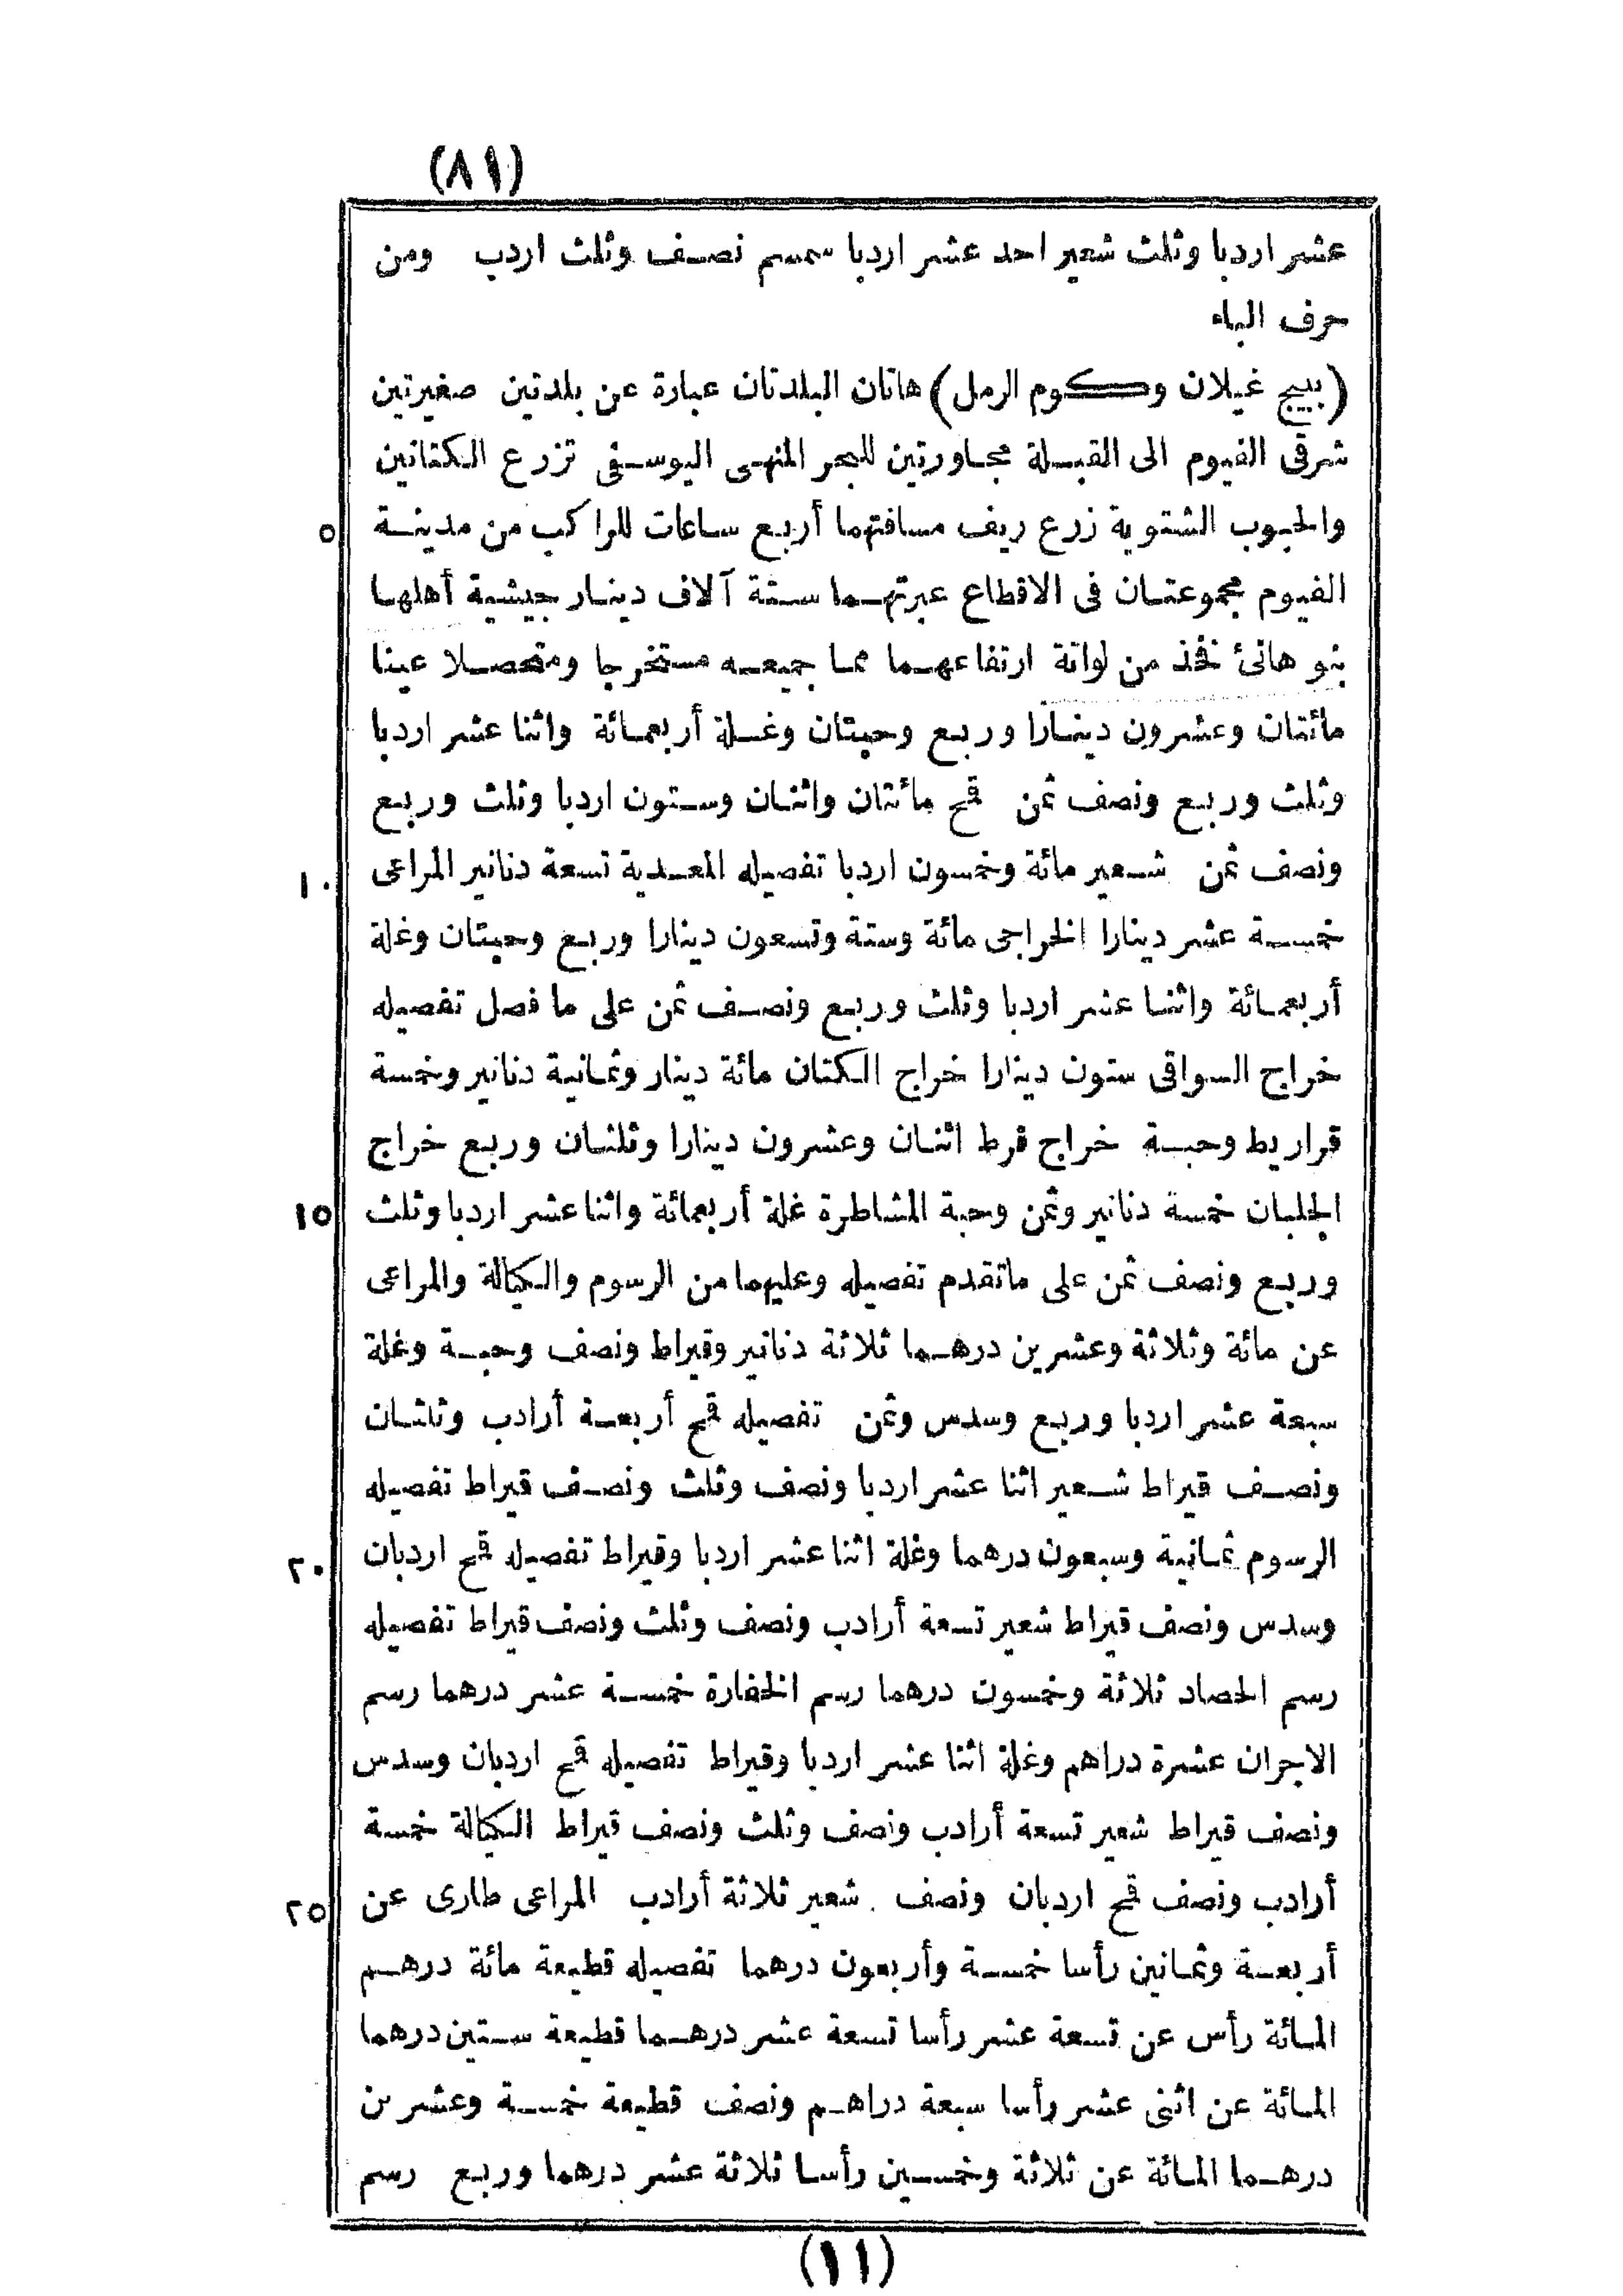 (٨١)
عشر اردبا وثلث شعير احد عشر اردبا سمسم نصف وثلث اردب ومن
حرف الباء
(ببيج غيلان وكوم الرمل) هاتان البلدتان عبارة عن بلدتين صغيرتين
شرقى الفيوم الى القبلة مجاورتين للبحر المنهى اليوسفى تزرع الكتانين
والحبوب الشتوية زرع ريف مسافتهما أربع ساعات للراكب من مدينة ٥
الفيوم مجموعتان فى الاقطاع عبرتهما ستة آلاف دينار جيشية أهلها
بنو هانئ فخذ من لواتة ارتفاعهما مما جميعه مستخرجا ومتحصلا عينا
مائتان وعشرون دينارا وربع وحبتان وغلة أربعمائة واثنا عشر اردبا
وثلث وربع ونصف ثمن قمح مائتان واثنان وستون اردبا وثلث وربع
ونصف ثمن شعير مائة وخمسون اردبا تفصيله المعدية تسعة دنانير المراعى ١٠
خمسة عشر دينارا الخراجى مائة وستة وتسعون دينارا وربع وحبتان وغلة
أربعمائة واثنا عشر اردبا وثلث وربع ونصف ثمن على ما فصل تفصيله
خراج السواقى ستون دينارا خراج الكتان مائة دينار وثمانية دنانير وخمسة
قراريط وحبة خراج قرط اثنان وعشرون دينارا وثلثان وربع خراج
الجلبان خمسة دنانير وثمن وحبة المشاطرة غلة أربعمائة واثنا عشر اردبا وثلث ١٥
وربع ونصف ثمن على ماتقدم تفصيله وعليهما من الرسوم والكيالة والمراعى
عن مائة وثلاثة وعشرين درهما ثلاثة دنانير وقيراط ونصف وحبة وغلة
سبعة عشر اردبا وربع وسدس وثمن تفصيله قمح أربعة أرادب وثلثان
ونصف قيراط شعير اثنا عشر اردبا ونصف وثلث ونصف قيراط تفصيله
الرسوم ثمانية وسبعون درهما وغلة اثنا عشر اردبا وقيراط تفصيله قمح اردبان ٢٠
وسدس ونصف قيراط شعير تسعة أرادب ونصف وثلث ونصف قيراط تفصيله
رسم الحصاد ثلاثة وخمسون درهما رسم الخفارة خمسة عشر درهما رسم
الاجران عشرة دراهم وغلة اثنا عشر اردبا وقيراط تفصيله قمح اردبان وسدس
ونصف قيراط شعير تسعة أرادب ونصف وثلث ونصف قيراط الكيالة خمسة
أرادب ونصف قمح اردبان ونصف شعير ثلاثة أرادب المراعى طارى عن ٢٥
أربعة وثمانين رأسا خمسة وأربعون درهما تفصيله قطيعة مائة درهم
المائة رأس عن تسعة عشر رأسا تسعة عشر درهما قطيعة ستين درهما
المائة عن اثنى عشر رأسا سبعة دراهم ونصف قطيعة خمسة وعشرين
درهما المائة عن ثلاثة وخمسين رأسا ثلاثة عشر درهما وربع رسم
(١١)